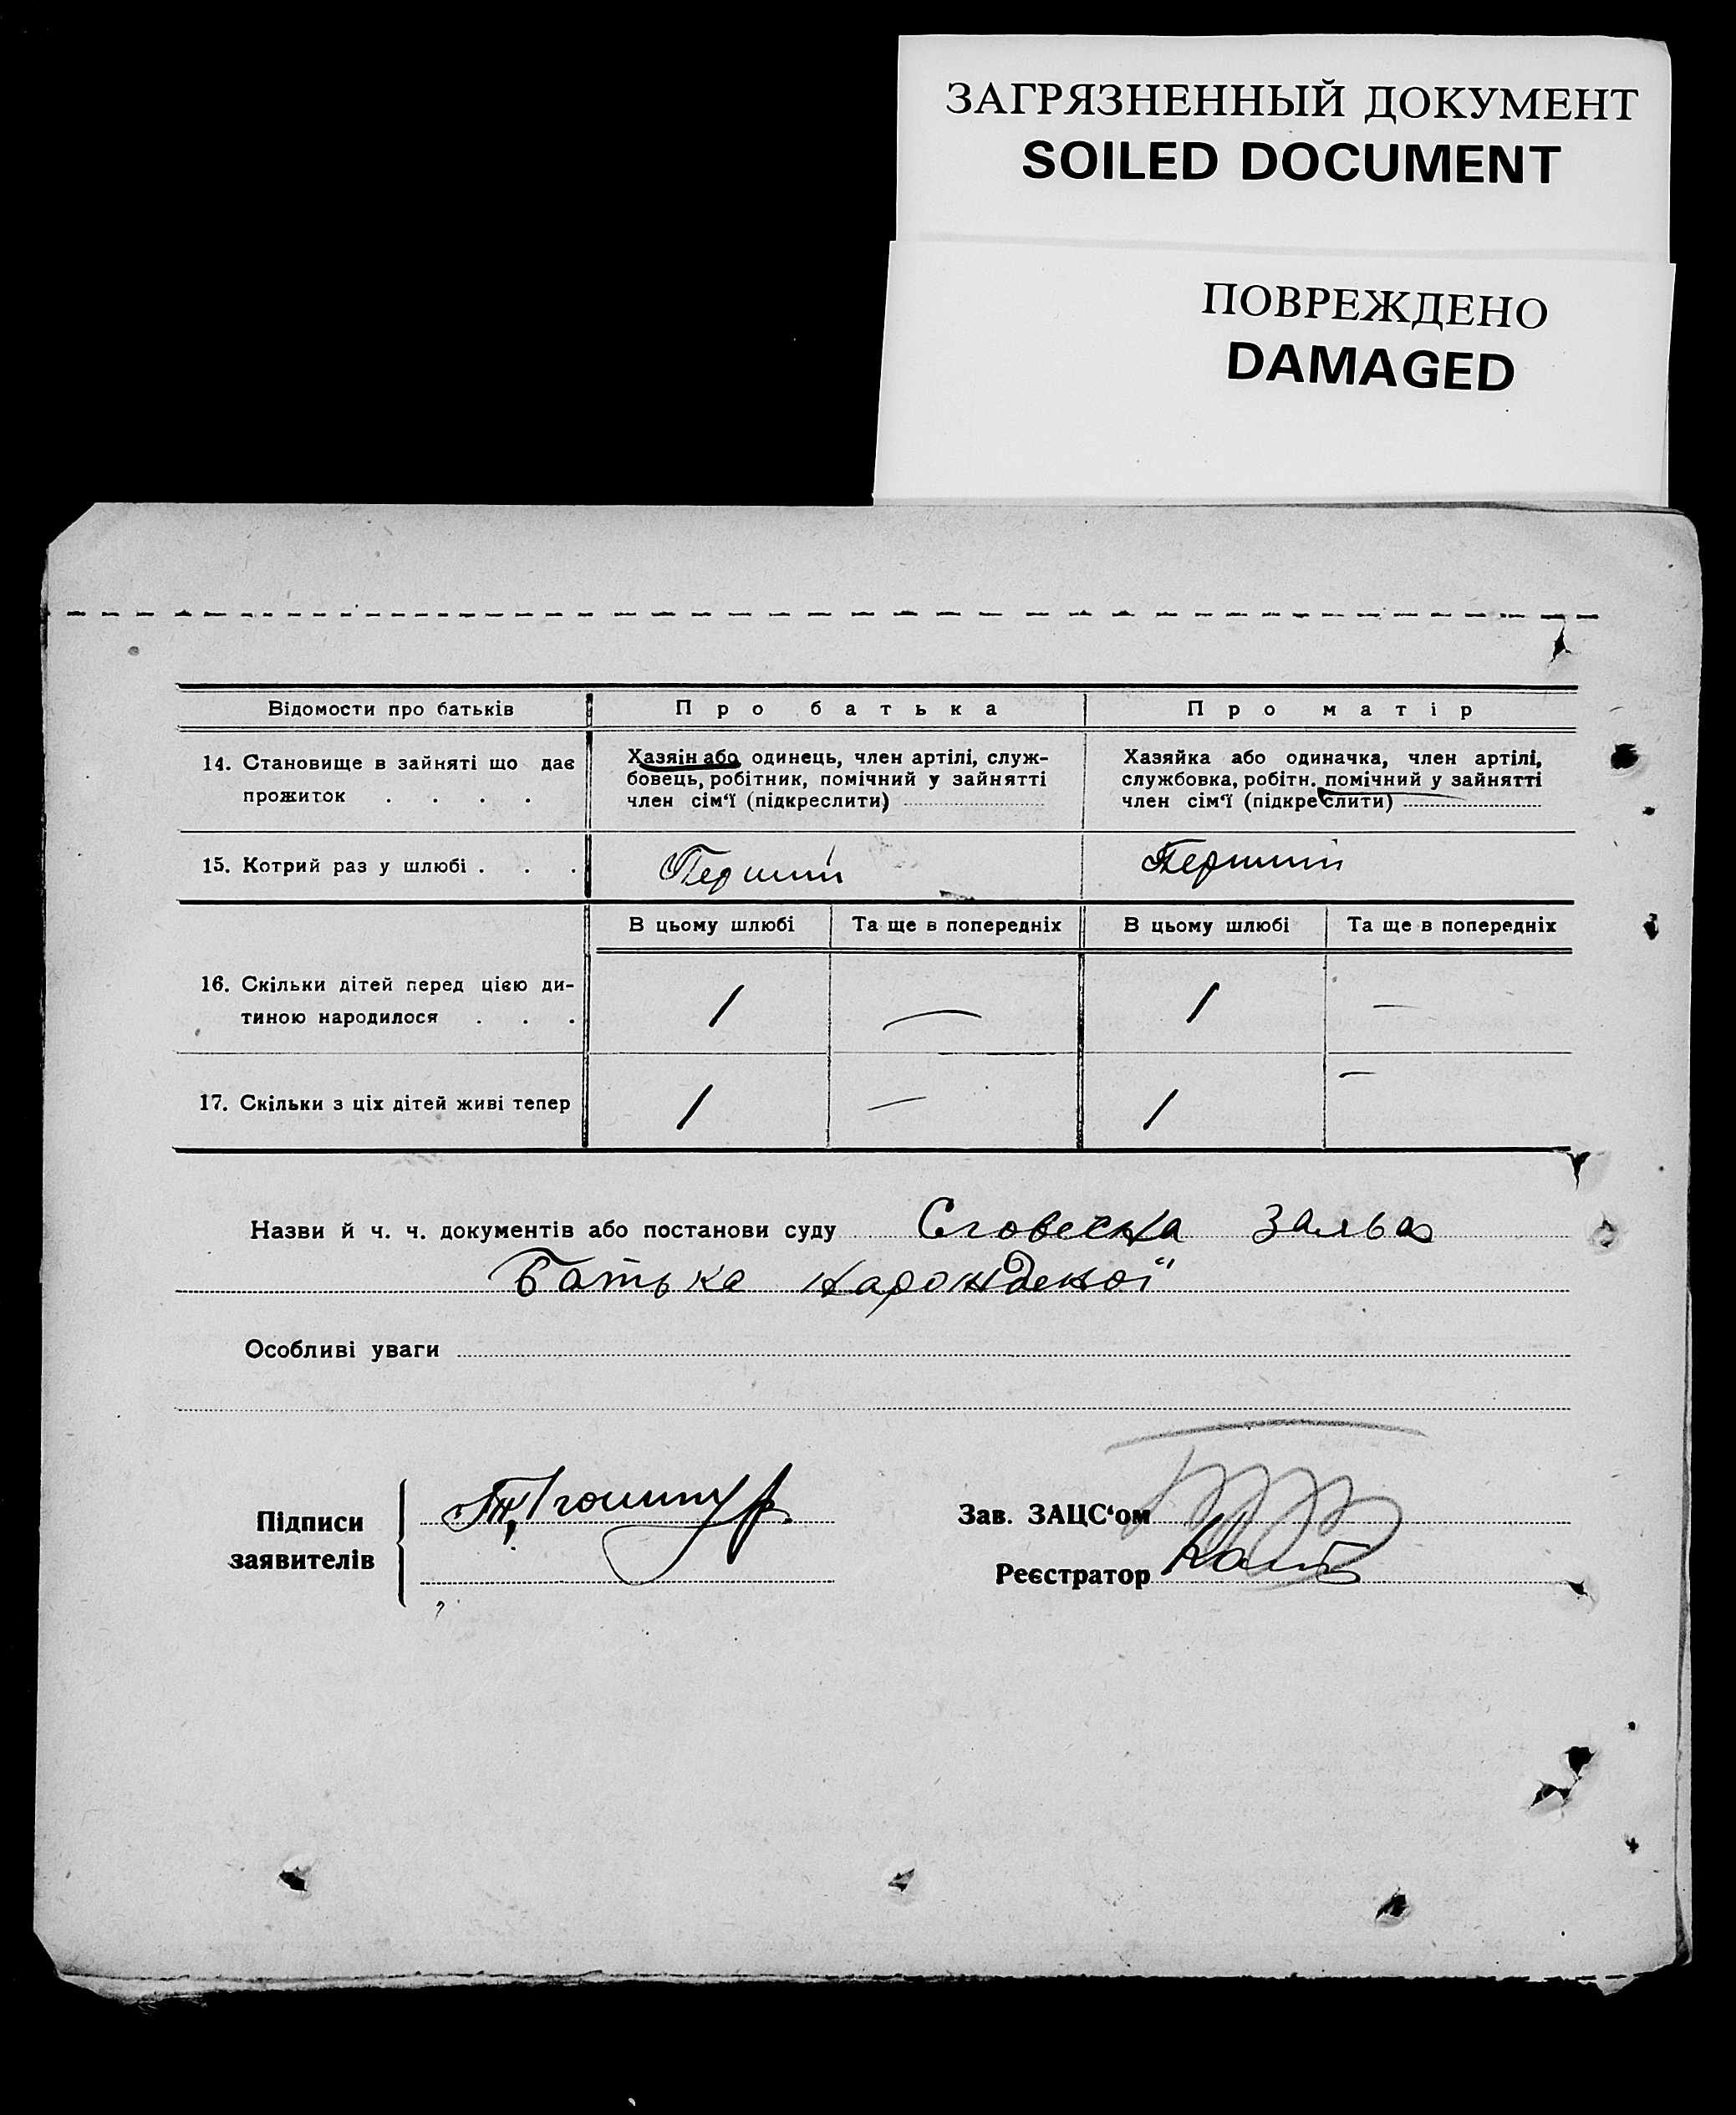 ЗАГРЯЗНЕННЫЙ ДОКУМЕНТ
SOILED DOCUMENT
ПОВРЕЖДЕНО
DAMAGED
Відомости про батьків Про батька Про матір
14. Становище в зайняті що дає
прожиток . . . .
Хазяін або одинець, член артілі, служ-
бовець, робітник, помічний у зайнятті
член сім‘ї (підкреслити)
Хазяйка або одиначка, член артілі,
службовка, робітн. помічний у зайнятті
член сім‘ї (підкреслити)
15. Котрий раз у шлюбі . . . Перший Перший
В цьому шлюбі Та ще в попередніх В цьому шлюбі Та ще в попередніх
16. Скільки дітей перед цією ди-
тиною народилося . . . 1 — 1 —
17. Скільки з ціх дітей живі тепер 1 — 1 —
Назви й ч. ч. документів або постанови суду Словесна заява
Батька народженої
Особливі уваги
Підписи
заявителів
Зав. ЗАЦС‘ом
Реєстратор